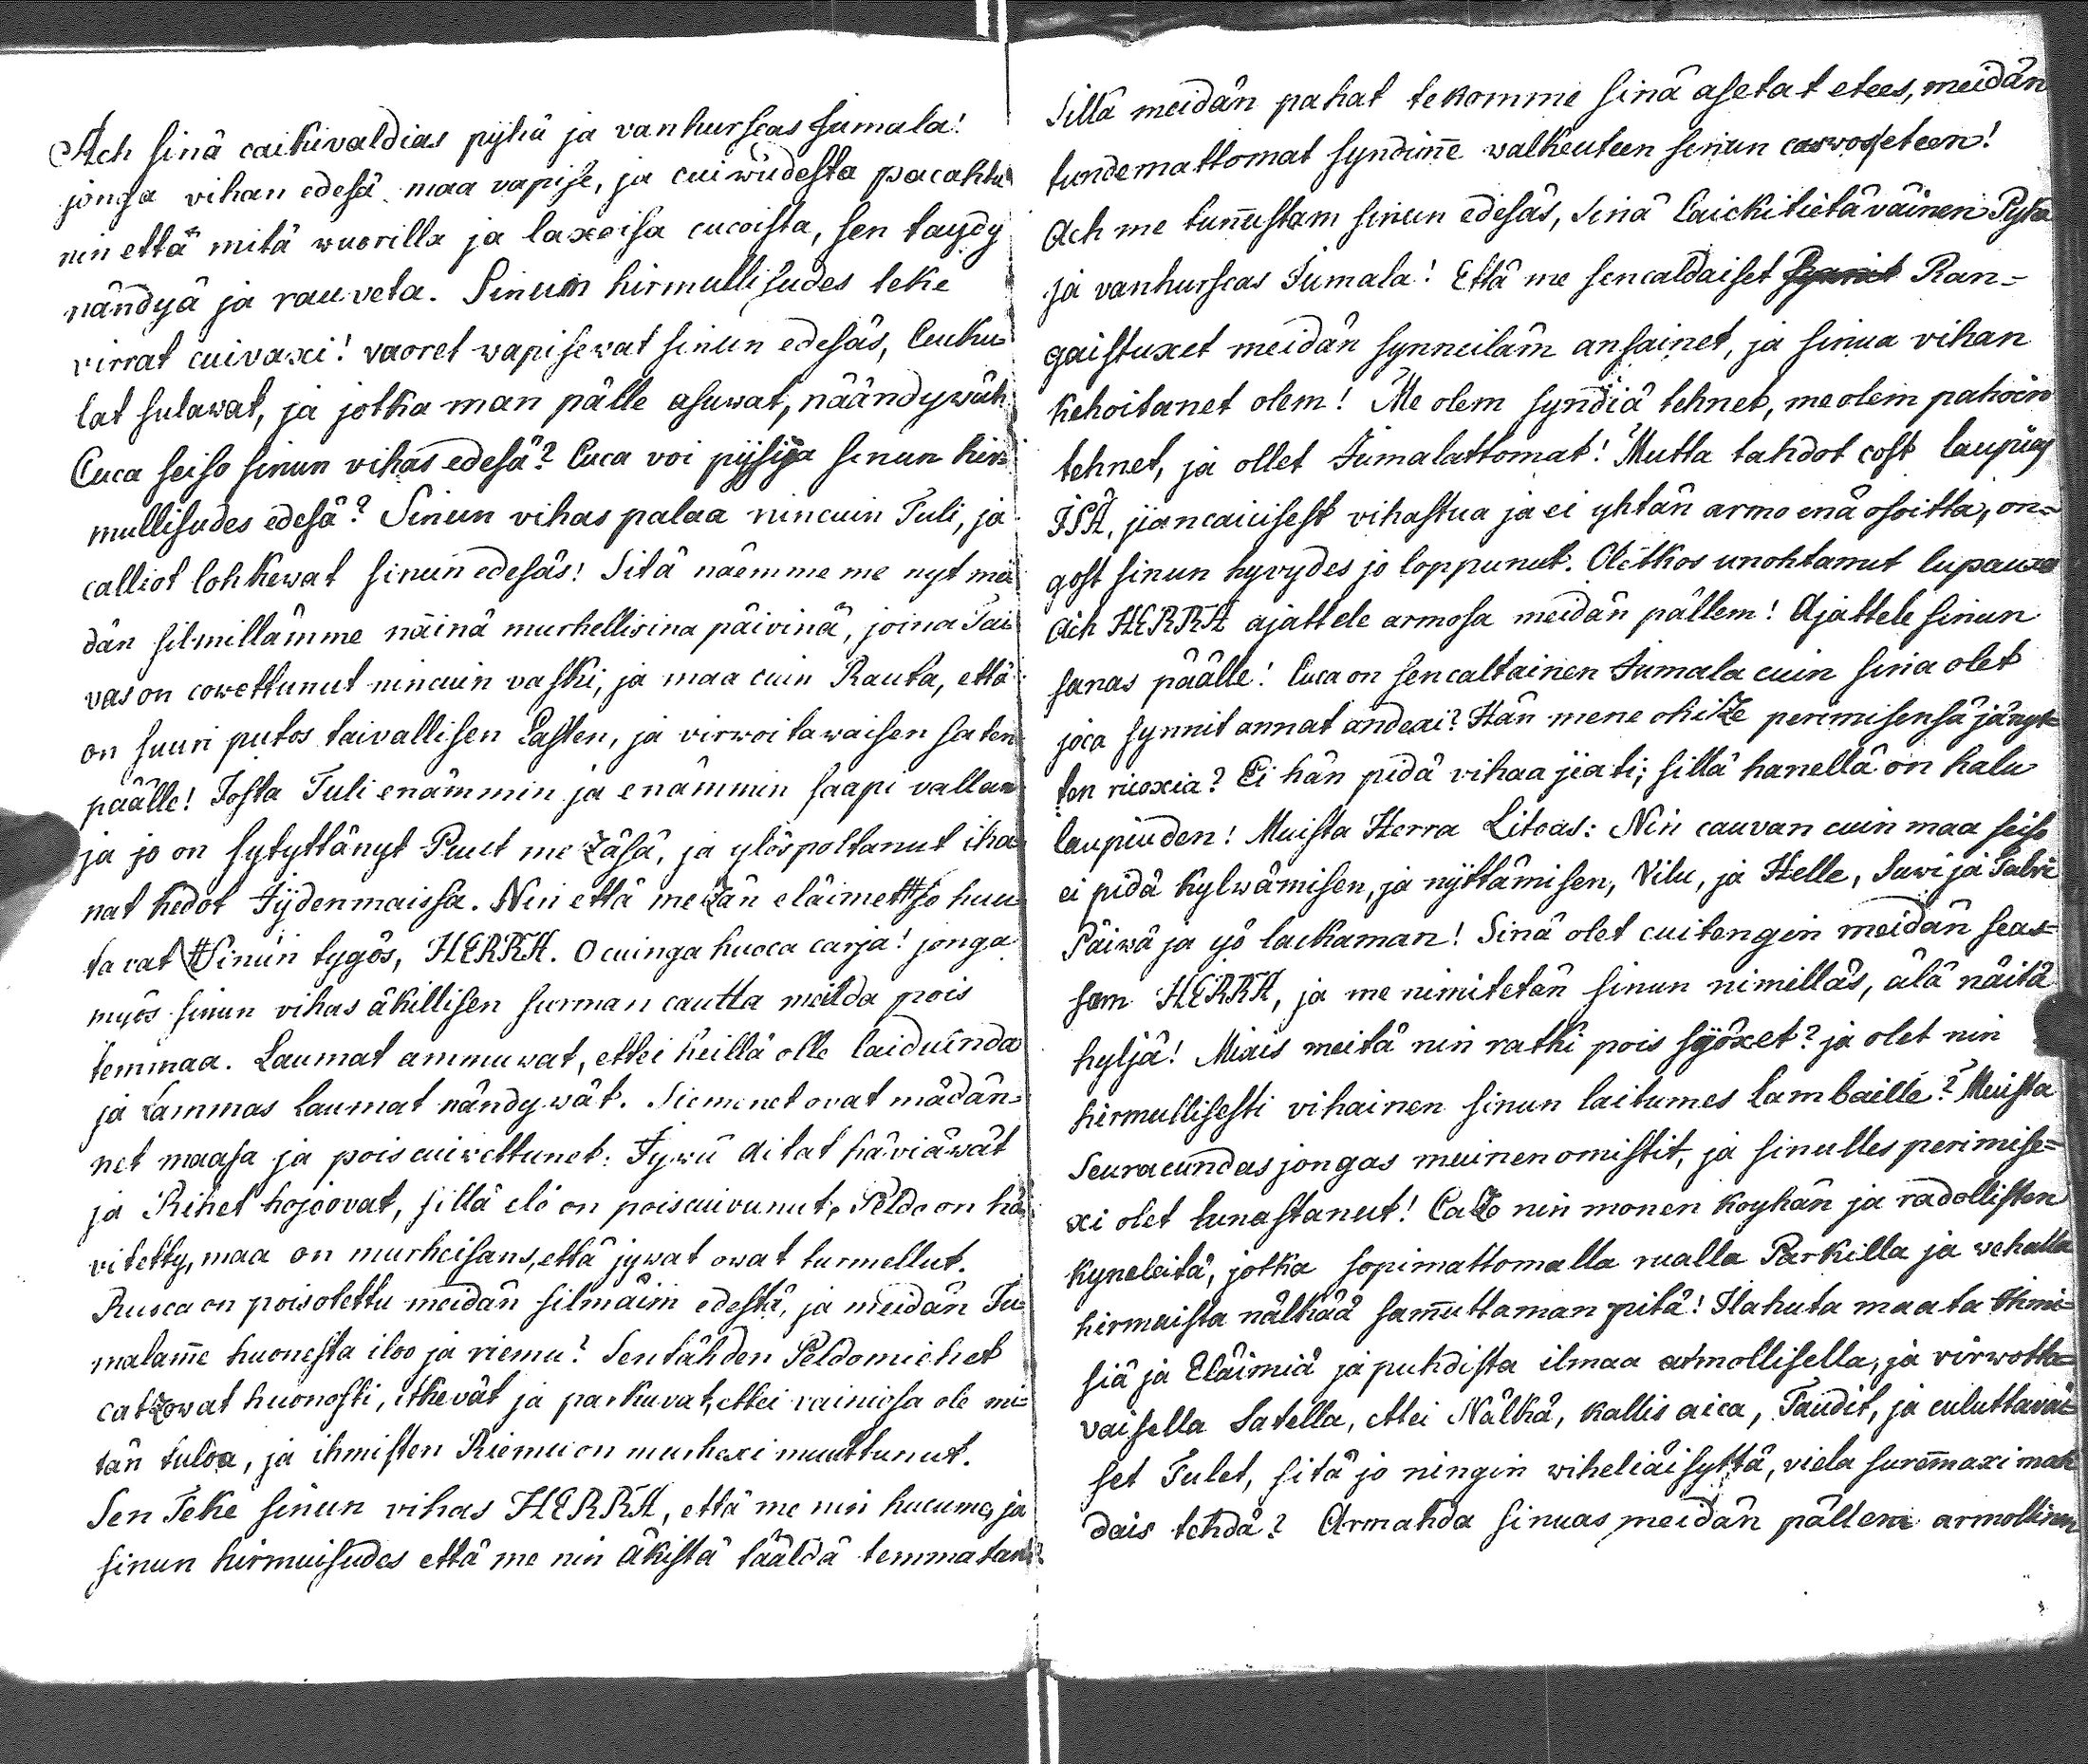 Ach sinä caikivaldias pyhä ja vanhurscas Jumala!
jonga vihan edesä maa vapise, ja cuiwudesta pacahtu
nin että mitä wuorilla ja laxoisa cucoista, sen täydy
nändyä ja rauveta. Sinun hirmullisudes teke
virrat cuivaxi! vuoret wapisewat sinun edesäs, Cucku-
lat sulawat, ja jotka man pälle asuwat, näändywät.
Cuca seiso sinun vihas edesä? Cuca voi pysyä sinun hir-
mullisudes edesä? Sinun vihas palaa nincuin Tuli, ja
calliot lohkewat sinun edesäs! Sitä näemme me nyt mei-
dän silmillämme näinä murhellisina päivinä, joina Tai-
vas on cowettunut nincuin vaski, ja maa cuin Rauta, että
on suuri putos taivallisen Casten, ja virwoitawaisen saten
päälle! Josta Tuli enämmin ja enämmin saapi vallan
ja jo on sytyttänyt Puut mezäsä, ja ylöspoltanut iha-
nat kedot Jydenmaissa. Nin että meidän eläimet so huu-
tavat Sinun tygös, HERRA. O cuinga huoca carja! jonga
myös sinun vihas äkillisen surman cautta meildä pois
temmaa. Laumat ammuwat, ettei heillä olle laiduinda
ja Lammas laumat nändywät. Siemenet ovat mädän-
net maasa ja pois cuiwettunet. Jywä Aitat häviäwät
ja Rihet hojoovat, sillä elo on poiscuivunut, Peldo on hä-
vitetty, maa on murheisans, että jywat owat turmellut.
Rusca on poisotettu meidän silmäim edestä, ja meidän Ju-
malam̄e huonesta iloo ja riemu? Sentähden Peldomiehet
catzowat huonosti, itkevät ja parkuvat, ettei vainiosa ole mi-
tän tuloa, ja ihmisten Riemu on murhexi muuttunut.
Sen Teke sinun vihas HERRA, että me nin hucume, ja
sinun hirmuisudes että me nin äkistä tääldä temmatan?
Sillä meidän pahat tekomme sinä asetat etees, meidän
tundemattomat syndim̄e walkeuteen sinun caswos eteen!
Ach me tun̄ustam sinun edesäs, sinä Caickitietäväinen Pyhä
ja vanhurscas Jumala! Että me sencaldaiset Ran-
gaistuxet meidän synneiläm ansainet, ja sinua vihan
kehoitanet olem! Me olem syndiä tehnet, me olem pahoin
tehnet, ja ollet Jumalattomat! Mutta tahdot cost laupias
ISÄ, jiancaicisest vihastua ja ei yhtän armo enä osoitta, on-
gost sinun hyvydes jo loppunut. Oletkos unohtanut lupauxes
Ach HERRA ajattele armosa meidän pällem! Ajattele sinun
sanas päälle! Cuca on sencaltainen Jumala cuin sinä olet
joca synnit annat andexi? Hän mene ohitze perimisensä jänyt-
ten ricoxia? Ei hän pidä vihaa jiati; sillä hanellä on halu
laupiuden! Muista Herra Litoas: Nin cauvan cuin maa seiso
ei pidä kylwämisen, ja nyttämisen, Vilu, ja Helle, Suwi ja Talvi
Päiwä ja yö lackaman! Sinä olet cuitengin meidän seas-
sam HERRA, ja me nimitetän sinun nimilläs, älä näitä
hyljä! Mixis meitä nin ratki pois syöxet? ja olet nin
hirmullisesti vihainen sinun laitumes Lambaille? Muista
Seuracundas jongas muinen omistit, ja sinulles perimise-
xi olet lunastanut! Catzo nin monen koyhän ja radollisten
kyneleitä, jotka sopimattomalla rualla Parkilla ja vehalla
hirmuista nälkää sam̄uttaman pitä! Ilahuta maata Ihmi-
siä ja Eläimiä ja puhdista ilmaa armollisella, ja virwotta-
vaisella Satella, ettei Nälkä, kallis aica, Taudit, ja culuttavai-
set Tulet, sitä jo ningin wiheliäisyttä, viela surem̄axi mah-
dais tehdä? Armahda sinuas meidän pällem armollinen